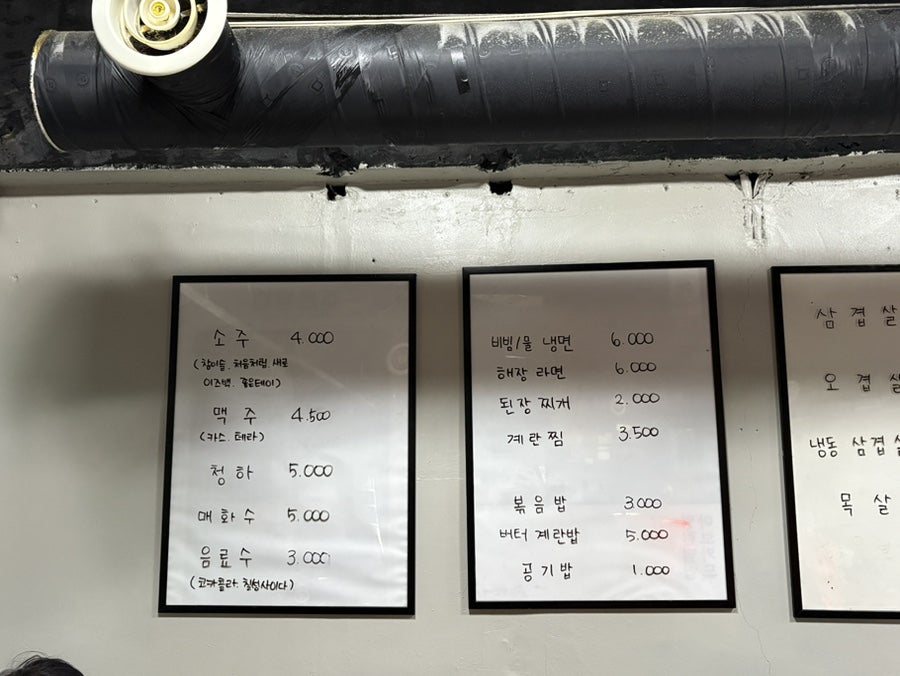 소주 4.000
(참이슬. 처음처럼. 새로
이즈백. 좋은데이)
맥주 4.500
(카스. 테라)
청하 5.000
매화수 5.000
음료수 3.000
(코카콜라. 칠성사이다)
비빔/물 냉면 6.000
해장 라면 6.000
된장 찌개 2.000
계란 찜 3.500
볶음밥 3.000
버터 계란밥 5.000
공기밥 1.000
삼겹살
오겹살
냉동 삼겹살
목살